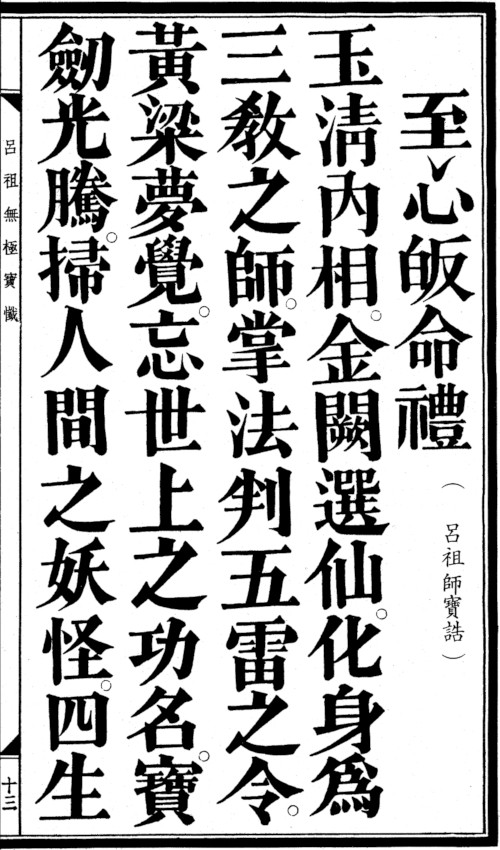 至心皈命禮
(呂祖師寶誥)
玉淸內相。金闕選仙。化身爲
三教之師。掌法判五雷之令。
黃粱夢覺。忘世上之功名。寶
劒光騰。掃人間之妖怪。四生
呂祖無極寶懺
十三